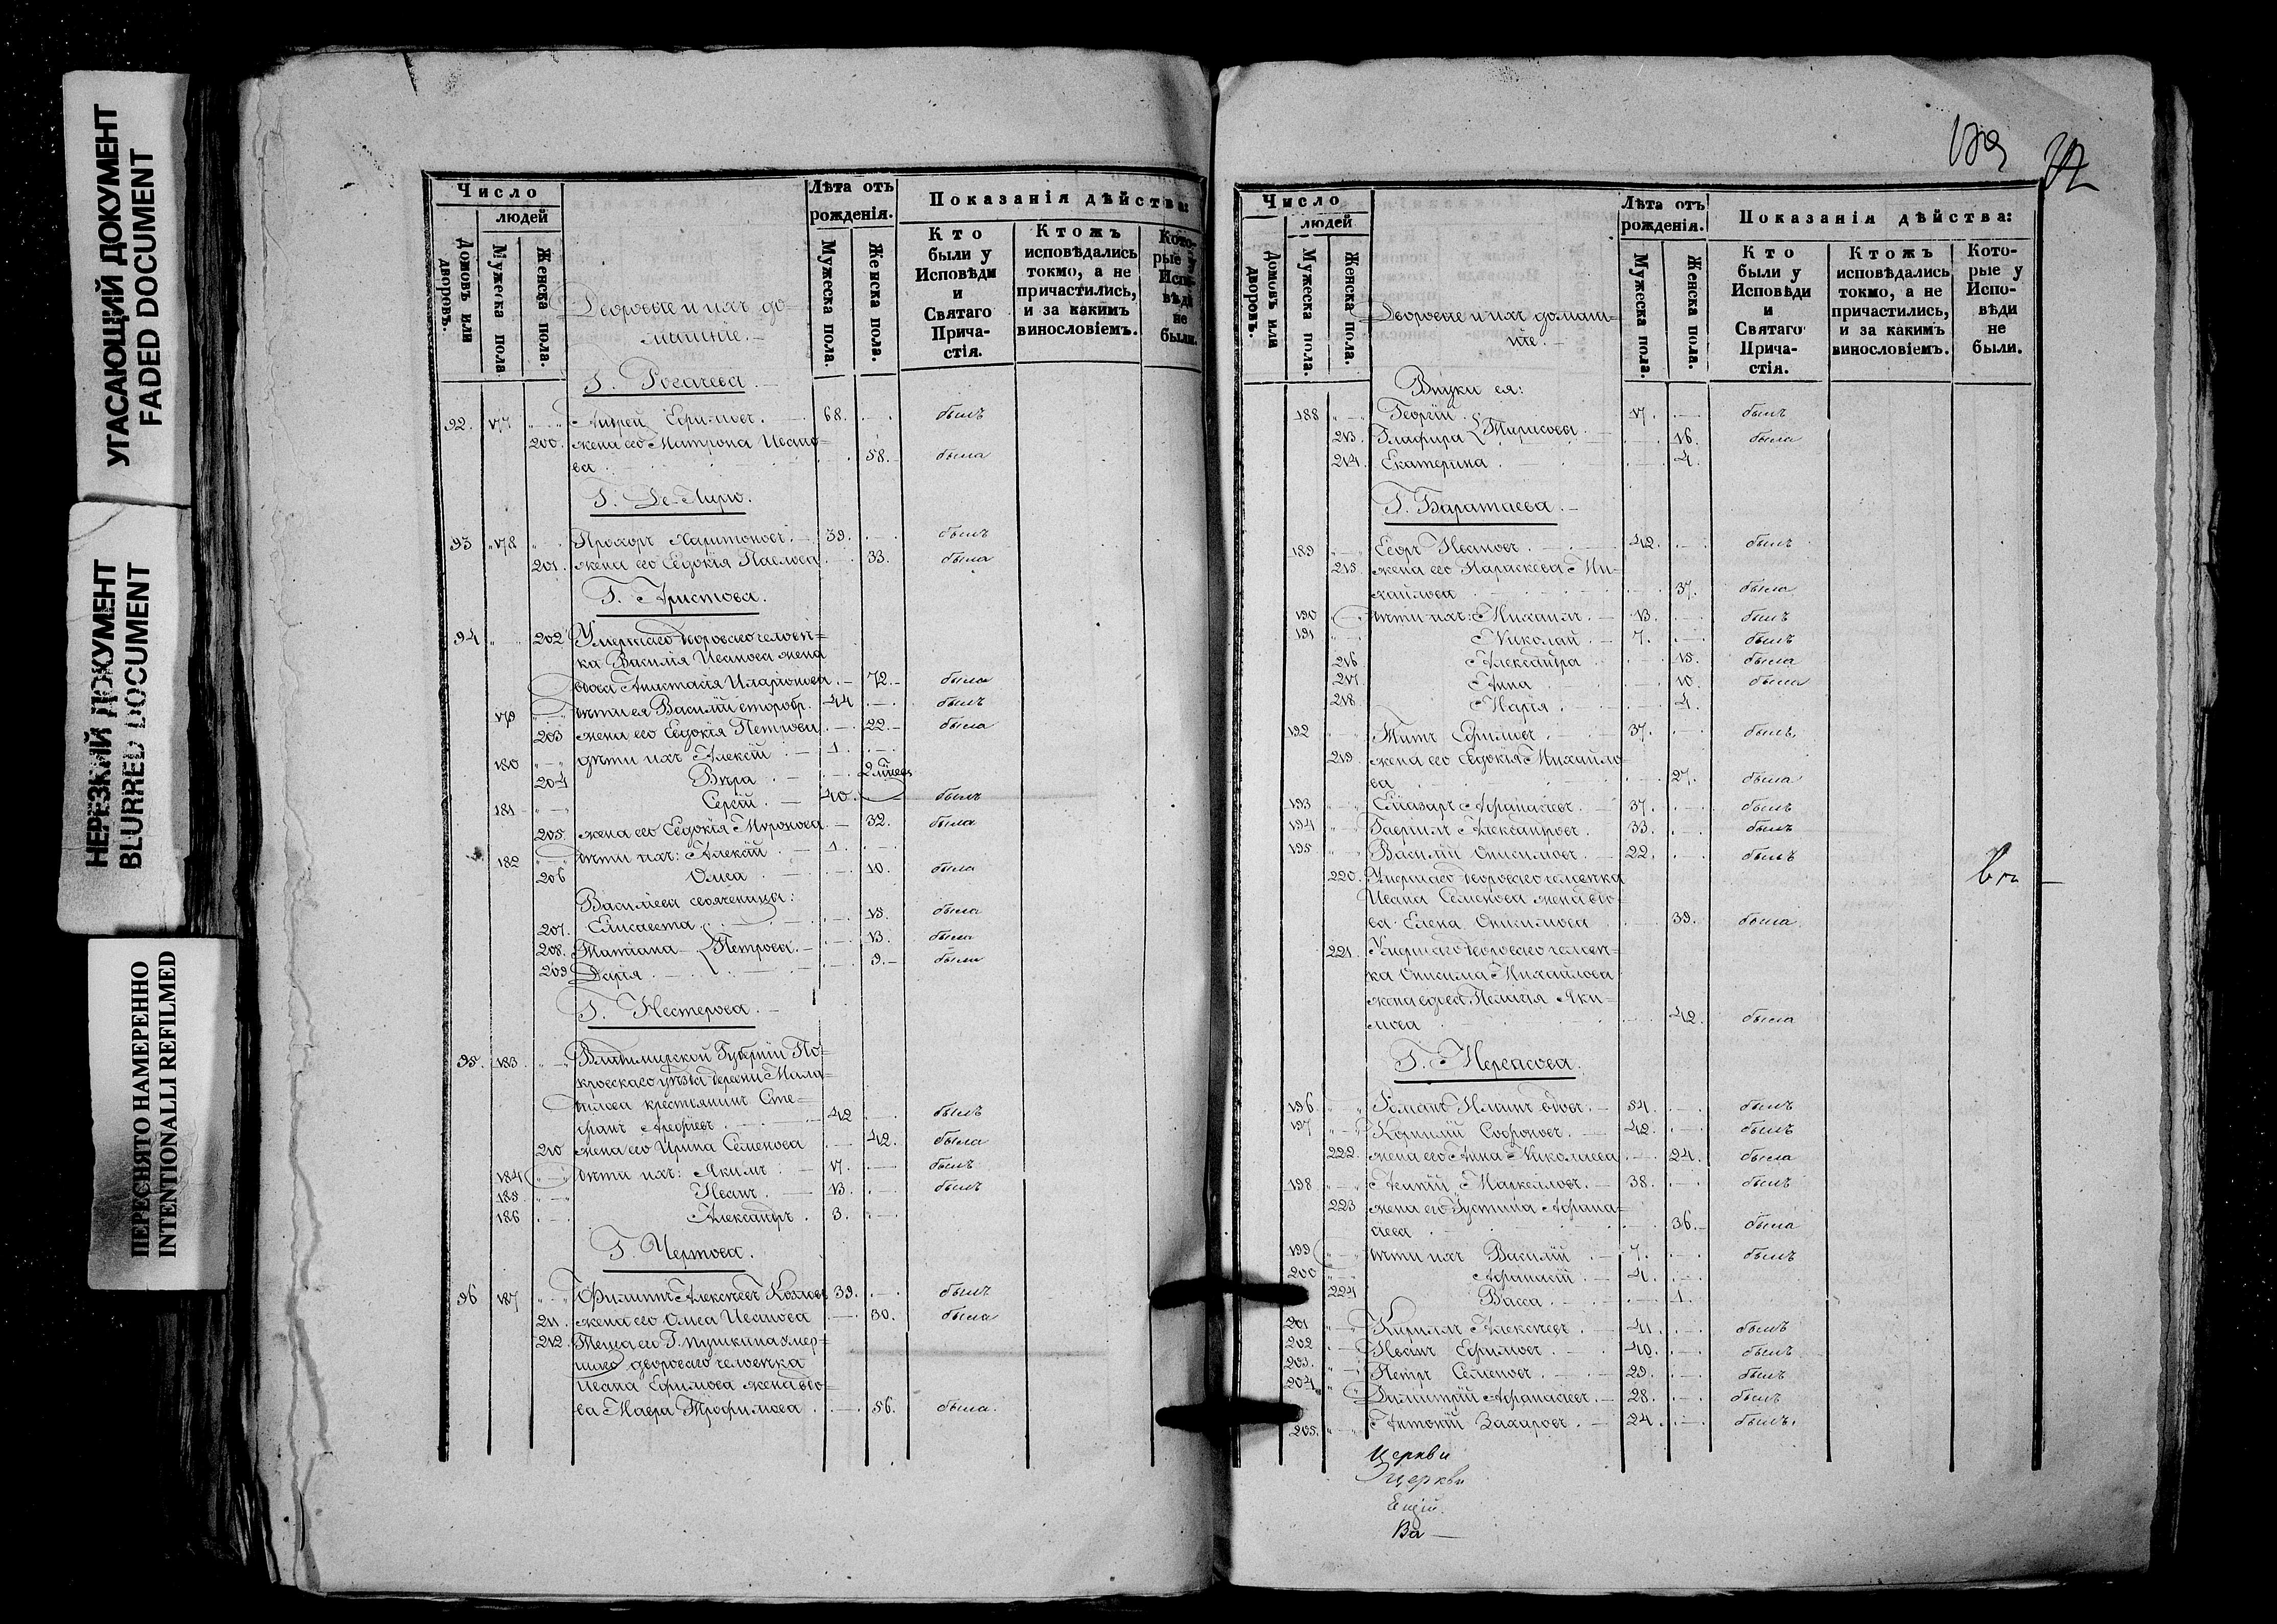 УГАСАЮЩИЙ ДОКУМЕНТ
FADED DOCUMENT
НЕРЕЗКИЙ ДОКУМЕНТ
BLURRED DOCUMENT
ПЕРЕСНЯТО НАМЕРЕННО
INTENTIONALLI REFILMED
Число
людей
Домовъ или дворовъ.
Мужеска пола.
Женска пола.
Лѣта отъ рожденія.
Мужеска пола.
Женска пола.
Показанія дѣйства:
Кто были у Исповѣди и Святаго Причастія.
Ктожъ исповѣдались токмо, а не причастились, и за какимъ винословіемъ.
Которые у Исповѣди не были.
Дворовые и ихъ до=
машніе.
Г. Рогачева.
92. 177 Андрей Ефимовъ. 68. былъ
200. жена его Матрона Ивано=
ва 58. была
Г. Де-Лиріо.
93 178 Прохоръ Харитоновъ. 39. былъ
201. жена его Евдокія Павлова 33. была
Г. Аристова.
94 202 Умершаго двороваго человѣ=
ка Василія Иванова жена
вдова Анастасія Иларіонова 72. была
179 дѣти ея Василій второбр. 44 былъ
203 жена его Евдокія Петрова 22. была
180 дѣти ихъ Алексій 1.
204 Вѣра
181 Сергій. 40. былъ
205. жена его Евдокія Миронова 32. была
182 дѣти ихъ: Алексій 1.
206 Олга 10. была
Василіева своячиница:
207. Елисавета 15. была
208. Татіана Петрова. 13. была
209 Дарія 9. была
Г. Нестерова.
95. 183 Владимирской Губерніи По=
кровскаго уѣзда деревни Мала=
хилова крестьянинъ Сте=
фанъ Арефіевъ 42 былъ
210 жена его Ирина Семенова 42. была
184 дѣти ихъ: Якимъ 17. былъ
185. Иванъ. 13. былъ
186 Александръ. 3.
Г. Чертова.
96 187 Филиппъ Алексѣевъ Козловъ 39. былъ
211. жена его Олга Иванова 30. была
212. Теща его Г. Пушкина умер=
шаго двороваго человѣка
Ивана Ефимова жена вдо=
ва Мавра Трофимова 56. была.
Число
людей
Домовъ или дворовъ.
Мужеска пола.
Женска пола.
Лѣта отъ рожденія.
Мужеска пола.
Женска пола.
Показанія дѣйства:
Кто были у Исповѣди и Святаго Причастія.
Ктожъ исповѣдались токмо, а не причастились, и за какимъ винословіемъ.
Которые у Исповѣди не были.
Дворовые и ихъ домаш=
ніе.
Внуки ея:
188 Георгій 17. былъ
213. Глафира Тарасова 16. была
214. Екатерина 4.
Г. Баратаева.
189 Егоръ Ивановъ 42. былъ
215. жена его Параскева Ми=
хайлова 37. была
190 дѣти ихъ: Михаилъ. 13. былъ
191 Николай 7. былъ
216. Александра 15. была
217. Анна 10. была
218. Марія 4.
192 Титъ Ефимовъ 37. былъ,
219. жена его Евдокія Михайло=
ва 27. была
193 Елиазаръ Афанасіевъ. 37. былъ
194 Гавріилъ Александровъ. 33. былъ
195 Василій Онисимовъ. 22. былъ
220. Умершаго двороваго человѣка
Ивана Семенова жена вдо=
ва Елена Онисимова 39. была
221. Умершаго двороваго человѣ=
ка Онисима Михайлова
жена вдова Пелагія Яки=
мова 42. была
Г. Мерсаcова.
196 Романъ Ильинъ вдовъ. 54. былъ
197 Корнилій Софроновъ. 42. былъ
222. жена его Анна Николаева 24. была
198 Маркелловъ. 38. былъ
223 жена его Густина Афана=
сіева 36. была
199 дѣти ихъ Василій 7. былъ
200 Афанасій 4.
224 Васса 1.
201 Кириллъ Алексѣевъ. 41. былъ
202 Иванъ Ефимовъ. 40. былъ
203. Петръ Семеновъ 29. былъ
204. Димитрій Афанасіевъ. 28. былъ
205. Антоній Захаровъ. 24. былъ.
Церкви
церкви
Ва